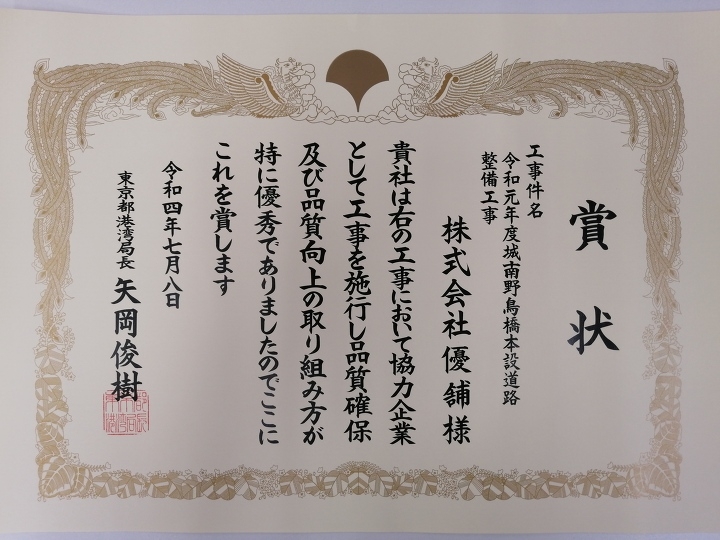 賞状
工事件名
令和元年度城南野鳥橋本設道路
整備工事
株式会社優舗様
貴社は右の工事において協力企業
として工事を施行し品質確保
及び品質向上の取り組み方が
特に優秀でありましたのでここに
これを賞します
令和四年七月八日
東京都港湾局長 矢岡俊樹